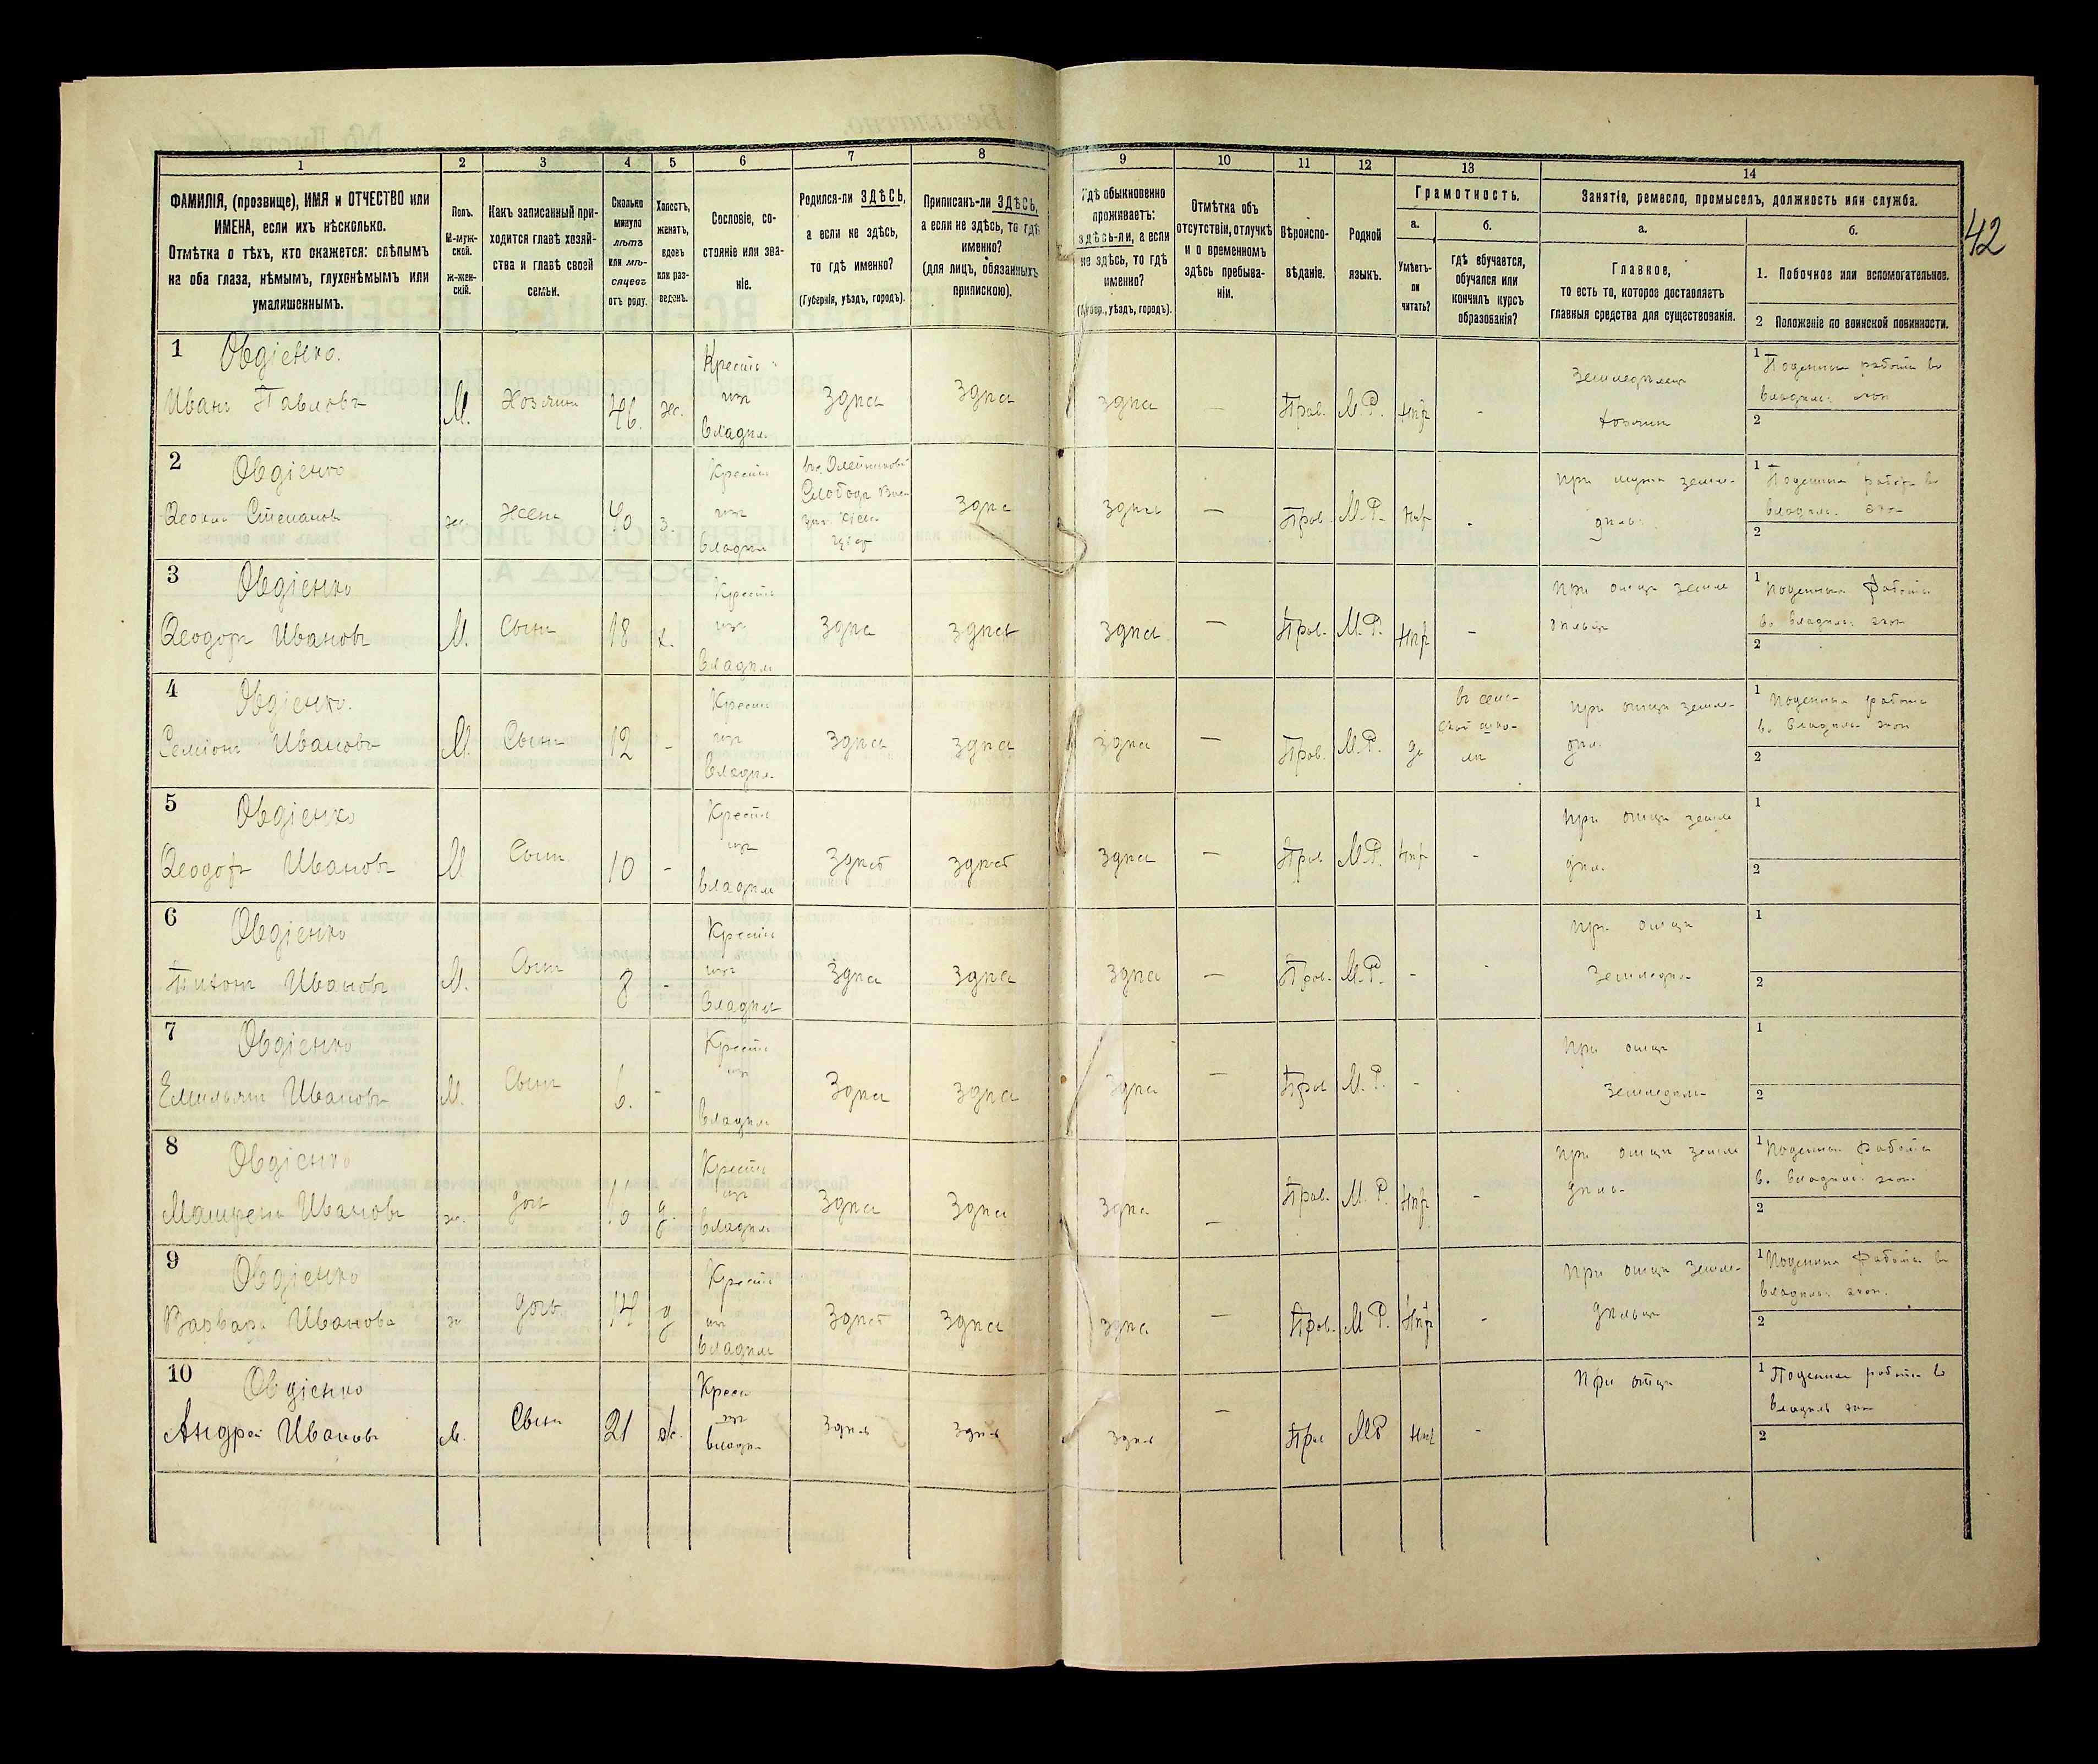 42
1 2 3 4 5 6 7 8 9 10 11 12 13 14
ФАМИЛІЯ, (прозвище), ИМЯ и ОТЧЕСТВО или
ИМЕНА, если ихъ нѣсколько.
Отмѣтка о тѣхъ, кто окажется: слѣпымъ
на оба глаза, нѣмымъ, глухонѣмымъ или
умалишеннымъ.
Полъ.
М-муж-
ской.
ж-жен-
скій.
Какъ записанный при-
ходится главѣ хозяй-
ства и главѣ своей
семьи.
Сколько
минуло
лѣтъ
или мѣ-
сяцевъ
отъ роду.
Холостъ,
женатъ,
вдовъ
или раз-
веденъ.
Сословіе, со-
стояніе или зва-
ніе.
Родился-ли ЗДѢСЬ,
а если не здѣсь,
то гдѣ именно?
(Губернія, уѣздъ, городъ).
Приписанъ-ли ЗДѢСЬ,
а если не здѣсь, то гдѣ
именно?
(для лицъ, обязанныхъ
припискою).
Гдѣ обыкновенно
проживаетъ:
здѣсь-ли, а если
не здѣсь, то гдѣ
именно?
(Губер., уѣздъ, городъ).
Отмѣтка объ
отсутствіи, отлучкѣ
и о временномъ
здѣсь пребыва-
ніи.
Вѣроиспо-
вѣданіе.
Родной
языкъ.
Грамотность.
а.
Умѣетъ-
ли
читать?
б.
гдѣ обучается,
обучался или
кончилъ курсъ
образованія?
Занятіе, ремесло, промыселъ, должность или служба.
а.
Главное,
то есть то, которое доставляетъ
главныя средства для существованія.
б.
1. Побочное или вспомогательное.
2 Положеніе по воинской повинности.
1 Овдіенко.
Иванъ Павловъ М. Хозяинъ 46. ж. Крестьян изъ владѣл. здѣсь здѣсь здѣсь — Прав. М.Р. нѣт - Земледѣлецъ хозяин
1 Поденная работа во владѣльч экон
2
2 Овдіенко
Степанов ж. Жена 40 з. Крестьян изъ владѣл Слобода здѣсь здѣсь — Прав. М.Р. нѣт - При мужѣ земле- дѣльч.
1 Поденная работа во владѣльч. экон
2
3 Овдіенко
Ѳеодоръ Ивановъ М. Сынъ 18 х. Крестьян изъ владѣл здѣсь здѣсь здѣсь — Прав. М.Р. нѣт - При отцѣ земле дѣльцѣ
1 Поденная работа во владѣльч экон
2
4 Овдіенко.
Семіонъ Ивановъ М. Сынъ 12 - Крестьян изъ владѣл. здѣсь здѣсь здѣсь — Прав. М.Р. да въ сель- ской шко- лѣ При отцѣ земле- дѣл.
1 Поденная работа во владѣльч экон
2
5 Овдіенко
Ѳеодоръ Ивановъ М Сынъ 10 - Крестьян изъ владѣл здѣсь здѣсь здѣсь — Прав М.Р. нѣт - При отцѣ земле дѣл.
1
2
6 Овдіенко
Тихонъ Ивановъ М. Сынъ 8 - Крестьян изъ владѣл здѣсь здѣсь здѣсь — Прав. М.Р. - - При отцѣ Земледѣл-
1
2
7 Овдіенко
Емильянъ Ивановъ М. Сынъ 6. - Крестьян изъ владѣл здѣсь здѣсь здѣсь — Прав М.Р. - - При отцѣ земледѣл-
1
2
8 Овдіенко
Ивановъ ж. дочь 16 д. Крестьян изъ владѣл здѣсь здѣсь здѣсь — Прав. М.Р. нѣт - При отцѣ земле дѣль-
1 Поденная работа во владѣльч экон.
2
9 Овдіенко
Варвара Иванова ж дочь 14 д Крестьян изъ владѣл здѣсь здѣсь здѣсь — Прав. М.Р. нѣт - При отцѣ земле- дѣльцѣ
1 Поденная работа во владѣльч экон.
2
10 Овдіенко
Андрей Ивановъ М. Сынъ 21 ж. Крест изъ владѣл здѣсь здѣсь здѣсь — Прав МР нѣт - При отцѣ
1 Поденная работа во владѣльч экон
2